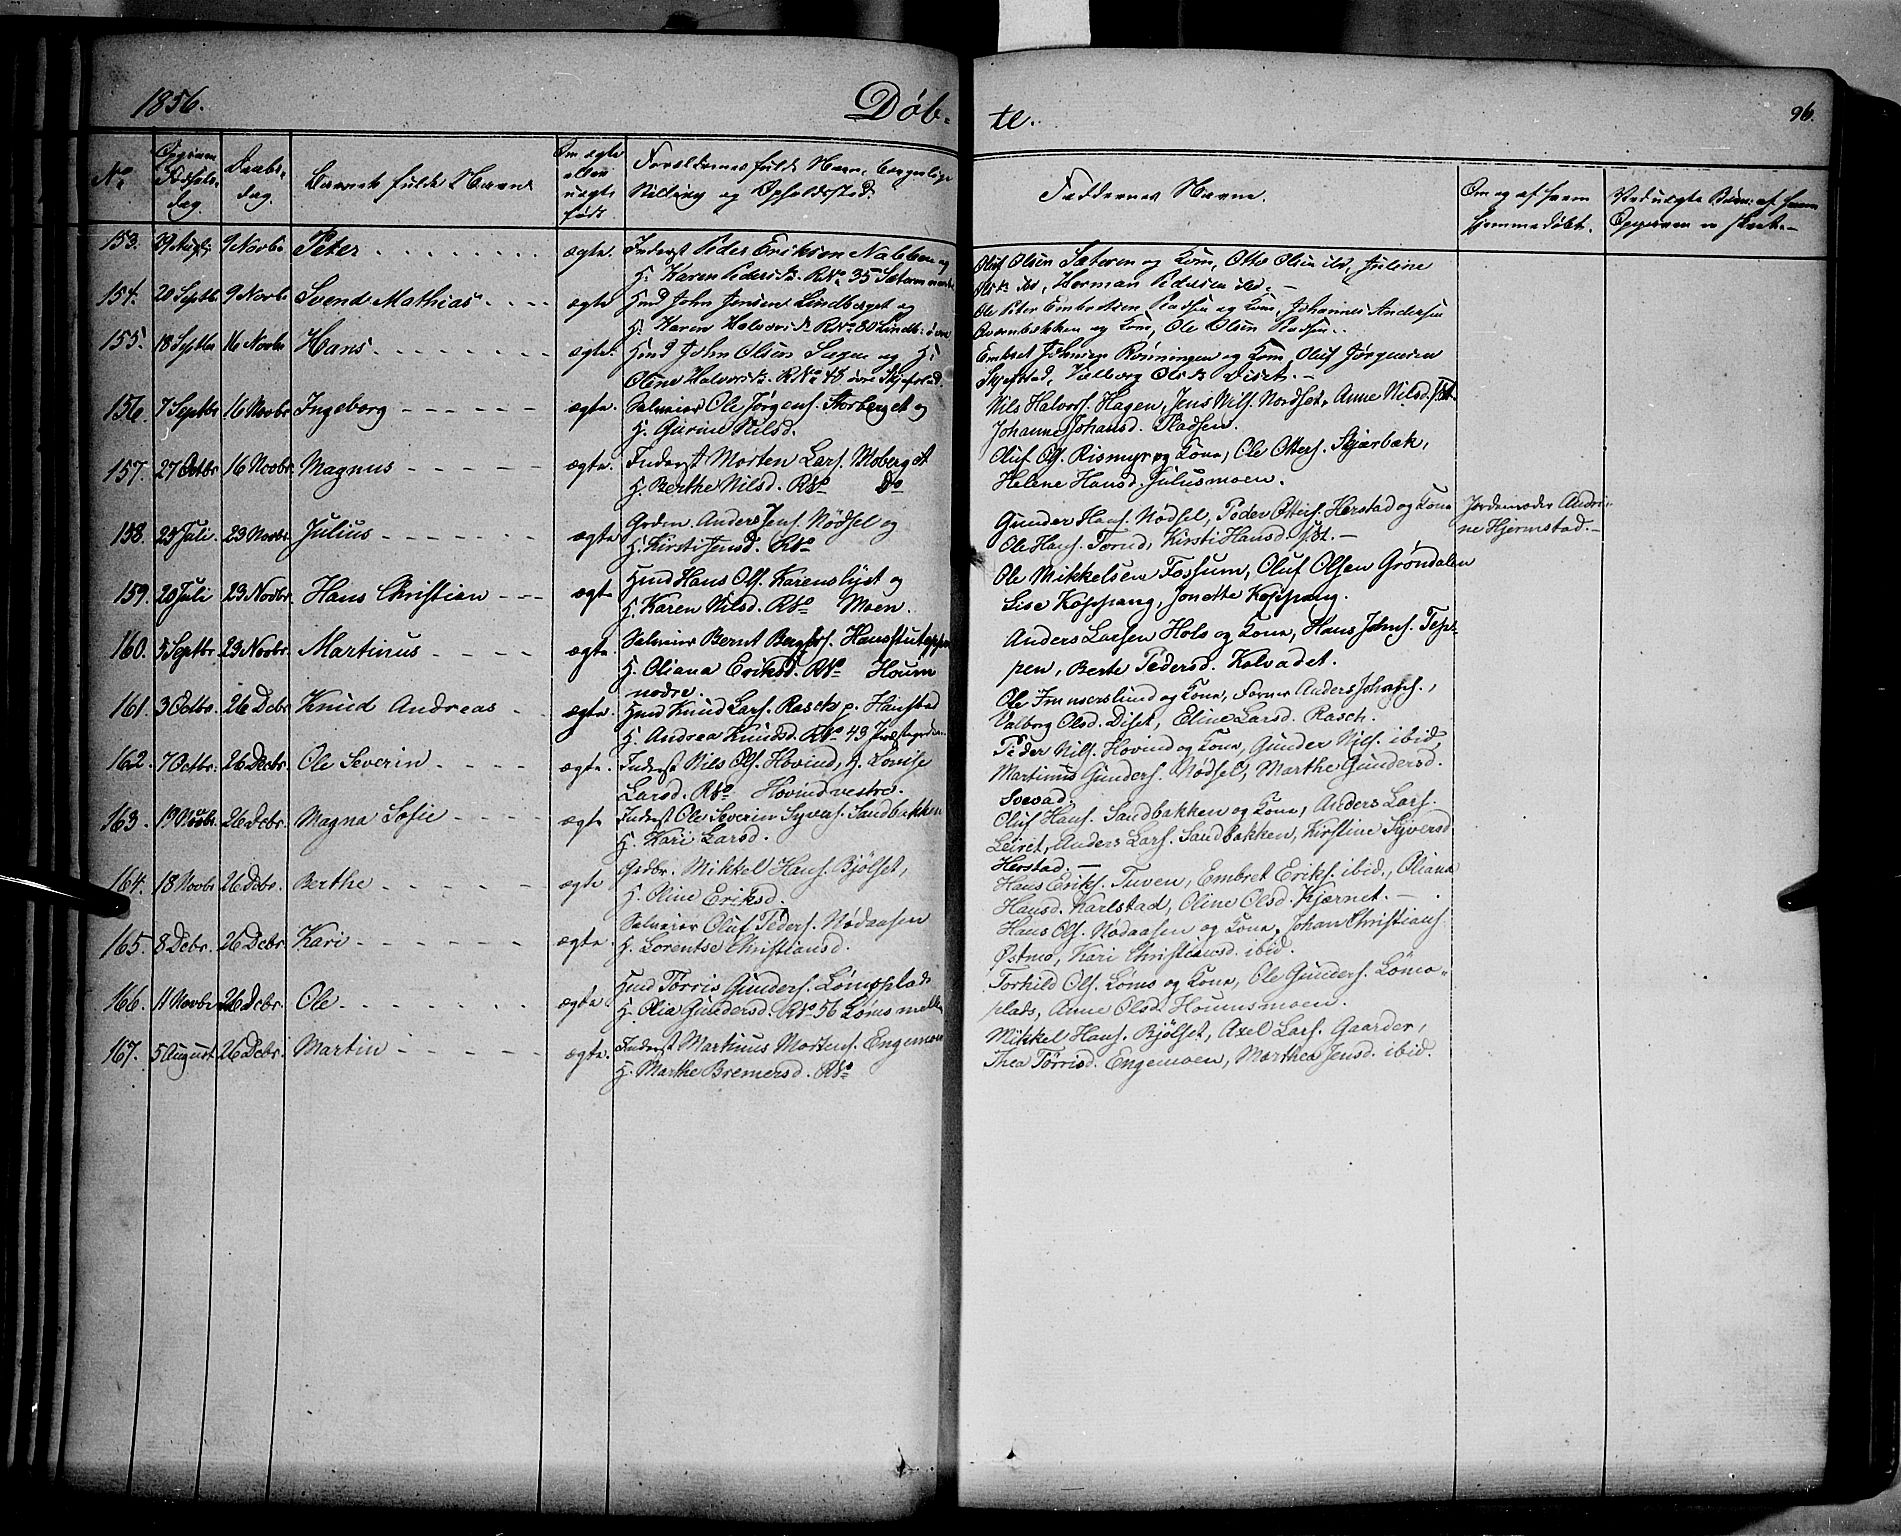 1856.
Døb-
te.
96.
No
Daabs-
dag.
Barnets fulde Navn
Om ægte
eller
uægte
født
Forældrenes fulde Navn, borgerlige
Stilling og Opholdssted.
Faddernes Navne.
Om og af hvem
hjemmedøbt.
153. 9 Novbr Peter ægte. Inderst Peder Eriksen Nabben og
H. Karen Pedersd. RNo 35 Sætaren
Oluf Olsen Sæteren og Kone, Otto Olsen ibd, Juline
Olsd. ibd, Herman Pedersen ibd.
154. 20 Septbr 9 Novbr. Svend Mathias ægte Hmd John Jensen Lindberget og
H. Karen Halvorsd. RNo 80 Lindb. øvre
Ole Peter Embretsen Pladsen og Kone, Johannes Andersen
Kværnbækken og Kone, Ole Olsen Pladsen.
155. 18 Septbr 16 Novbr Hans ægte. Hmd John Olsen og H.
Oline Halvorsd. RNo 48 øvre Skjefstad.
Embret Johnsen Rønningen og Kone, Oluf Jørgensen
Skjefstad, Valborg Olsd. Diset.
156. 7 Septbr 16 Novbr Ingeborg ægte. Selveier Ole Jørgens. Storberget og
H. Gurine Nilsd.
Nils Halvors. Hagen, Jens Nils. Nordset, Anne Nilsd. ibd.
Johanne Johansd. Pladsen.
157. 27 Octbr 16 Novbr. Magnus ægte. Inderst Morten Lars. Moberget
H. Berthe Nilsd. RNo Do
Oluf Ols. Rismyr og Kone, Ole Otters. Skjærbæk,
Helene Hansd. Julusmoen.
158. 25 Juli 23 Novbr. Julius ægte Anders Jens. Nødsel og
H. Kirsti Jensd. RNo
Gunder Hans. Nødsel, Peder Otters. Herstad og Kone
Ole Hans. Torud, Kirsti Hansd.
Jordemoder Andri-
ne Hjermstad.-
159. 20 Juli 23 Novbr. Hans Christian ægte Hmd Hans Ols. Karenslyst og
H. Karen Nilsd. RNo Moen.
Ole Mikkelsen Fossum, Oluf Olsen Grøndalen
Lise Koppang, Jonette Koppang.
160. 5 Septbr 23 Novbr. Martinus ægte. Selveier Bernt Berghers.
H. Oliana Eriksd. RNo Houm
nedre.
Anders Larsen Hols og Kone, Hans Johns. Tep-
pen, Berte Pedersd. Kolvadet.
161. 3 Octbr. 26 Dcbr Knud Andreas ægte. Hmd Knud Lars. Rasch p. Hanstad
H. Andrea Knudsd. RNo 43
Ole Imerslund og Kone, Anders Johans.,
Valborg Olsd. Diset, Eline Larsd. Rasch.
162. 7 Octbr. 26 Decbr. Ole Severin ægte. Inderst Nils Ols. Hovind, H. Lovise
Larsd. RNo Hovind vestre.
Peder Nils. Hovind og Kone, Gunder Nils. ibid,
Martinus Gunders. Nødsel, Marthe Gundersd.
Svevad.
163. 19 Novbr. 26 Dcbr. Magna Sofie ægte Inderst Ole Severin Syvers. Sandbakken
H. Kari Larsd.
Oluf Hans. Sandbakken og Kone, Anders Lars.
Leiret, Anders Lars. Sandbakken, Kirstine Syversd
Herstad.
164. 18 Novbr 26 Dcbr. Berthe ægte Gaardbr. Mikkel Hans. Bjølset,
H. Oline Eriksd.
Hans Eriks. Tuven, Embret Eriks. ibid., Oliana
Hansd. Karlstad, Oline Olsd. Kjærnet.-
165. 8 Dcbr. 26 Dcbr. Kari ægte. Selveier Oluf Peders. Nødaasen
H. Lorentse Christiansd.
Hans Ols. Nødaasen og Kone, Johan Christians.
Østmo, Kari Christiansd. ibid.
166. 11 Novbr 26 Dcbr. Ole ægte Hmd Tørris Gunders. Lømoplads
H. Olia Gundersd. RNo 56 Løms mell.
Torhild Ols. Løms og Kone, Ole Gunders. Lømo-
plads, Anne Olsd. Houmsmoen.
167. 5 August 26 Dcbr. Martin ægte. Inderst Martinus Mortens. Engemoen
H. Marthe Bremersd. RNo
Mikkel Hans. Bjølset, Axel Lars. Gaarder,
Thea Tørrisd. Engemoen, Marthea Jensd. ibid.